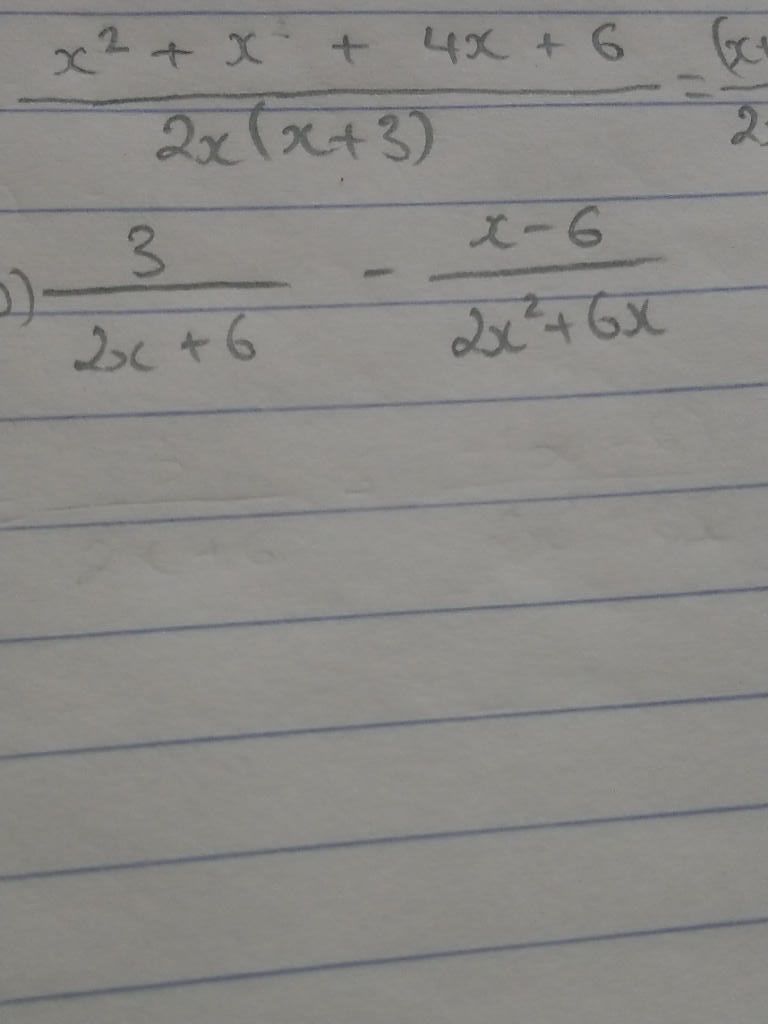 x² + x + 4x + 6 / 2x(x+3) = (x+ / 2x
b)) 3 / 2x + 6 - x - 6 / 2x² + 6x